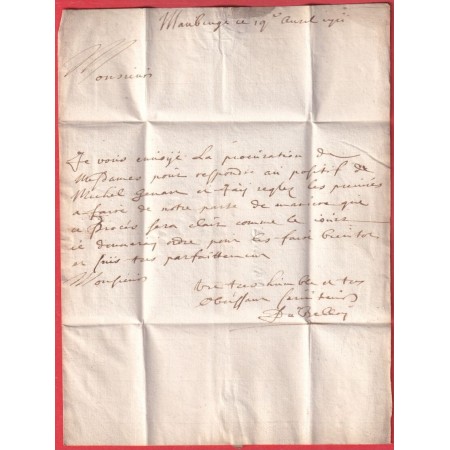 Maubeuge ce 19e Avril
Monsieur
Je vous envoye La procuration de
Mes Dames pour respondre au positif de
Michel et J'ay reglez les preuves
a faire de notre parte de maniere que
ce Proces sera clair comme le jour
je donneray ordre pour les faire bientot
et suis tres parfaittement
Monsieur
Vre tres humble et tres
Obeissant serviteur